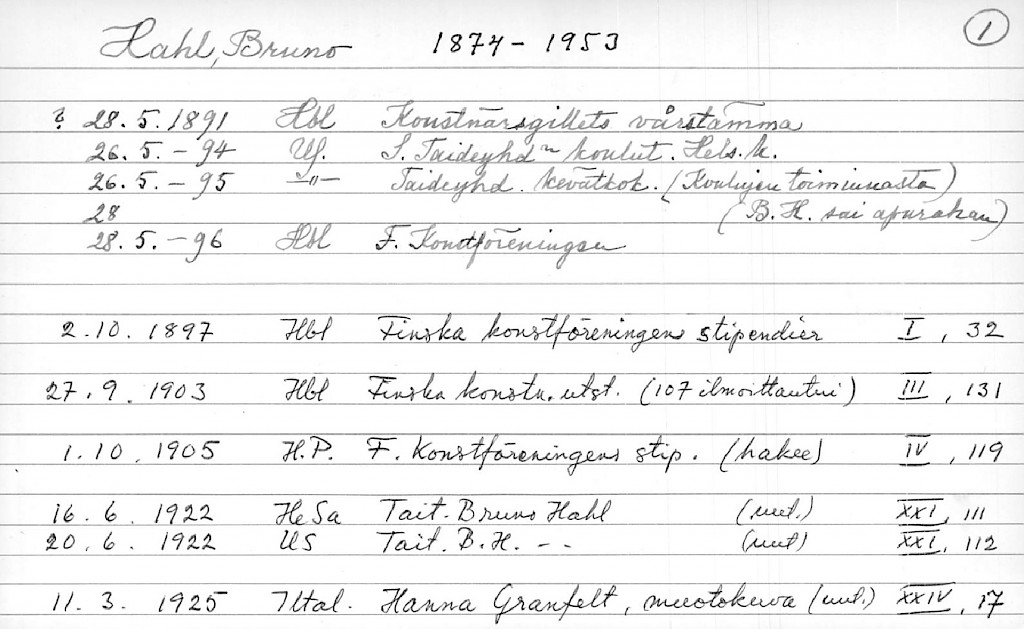 Hahl, Bruno 1874-1953 1
? 28.5.1891 Hbl Konstnärsgillets vårstämma
26.5.-94 Uf. S. Taideyhdn koulut. Hels. k.
26.5.-95 -"- Taideyhd. kevätkok. (Koulujen toiminnasta)
28 (B.H. sai apurahan)
28.5.-96 Hbl F. Konstföreningen
2.10.1897 Hbl Finska konstföreningens stipendier I, 32
27.9.1903 Hbl Finska konstn. utst. (107 ilmoittautui) III, 131
1.10.1905 H.P. F. Konstföreningens stip. (hakee) IV, 119
16.6.1922 HeSa Tait. Bruno Hahl (uut.) XXI, 111
20.6.1922 US Tait. B.H. -- (uut) XXI, 112
11.3.1925 Iltal. Hanna Granfelt, muotokuva (uut.) XXIV, 17